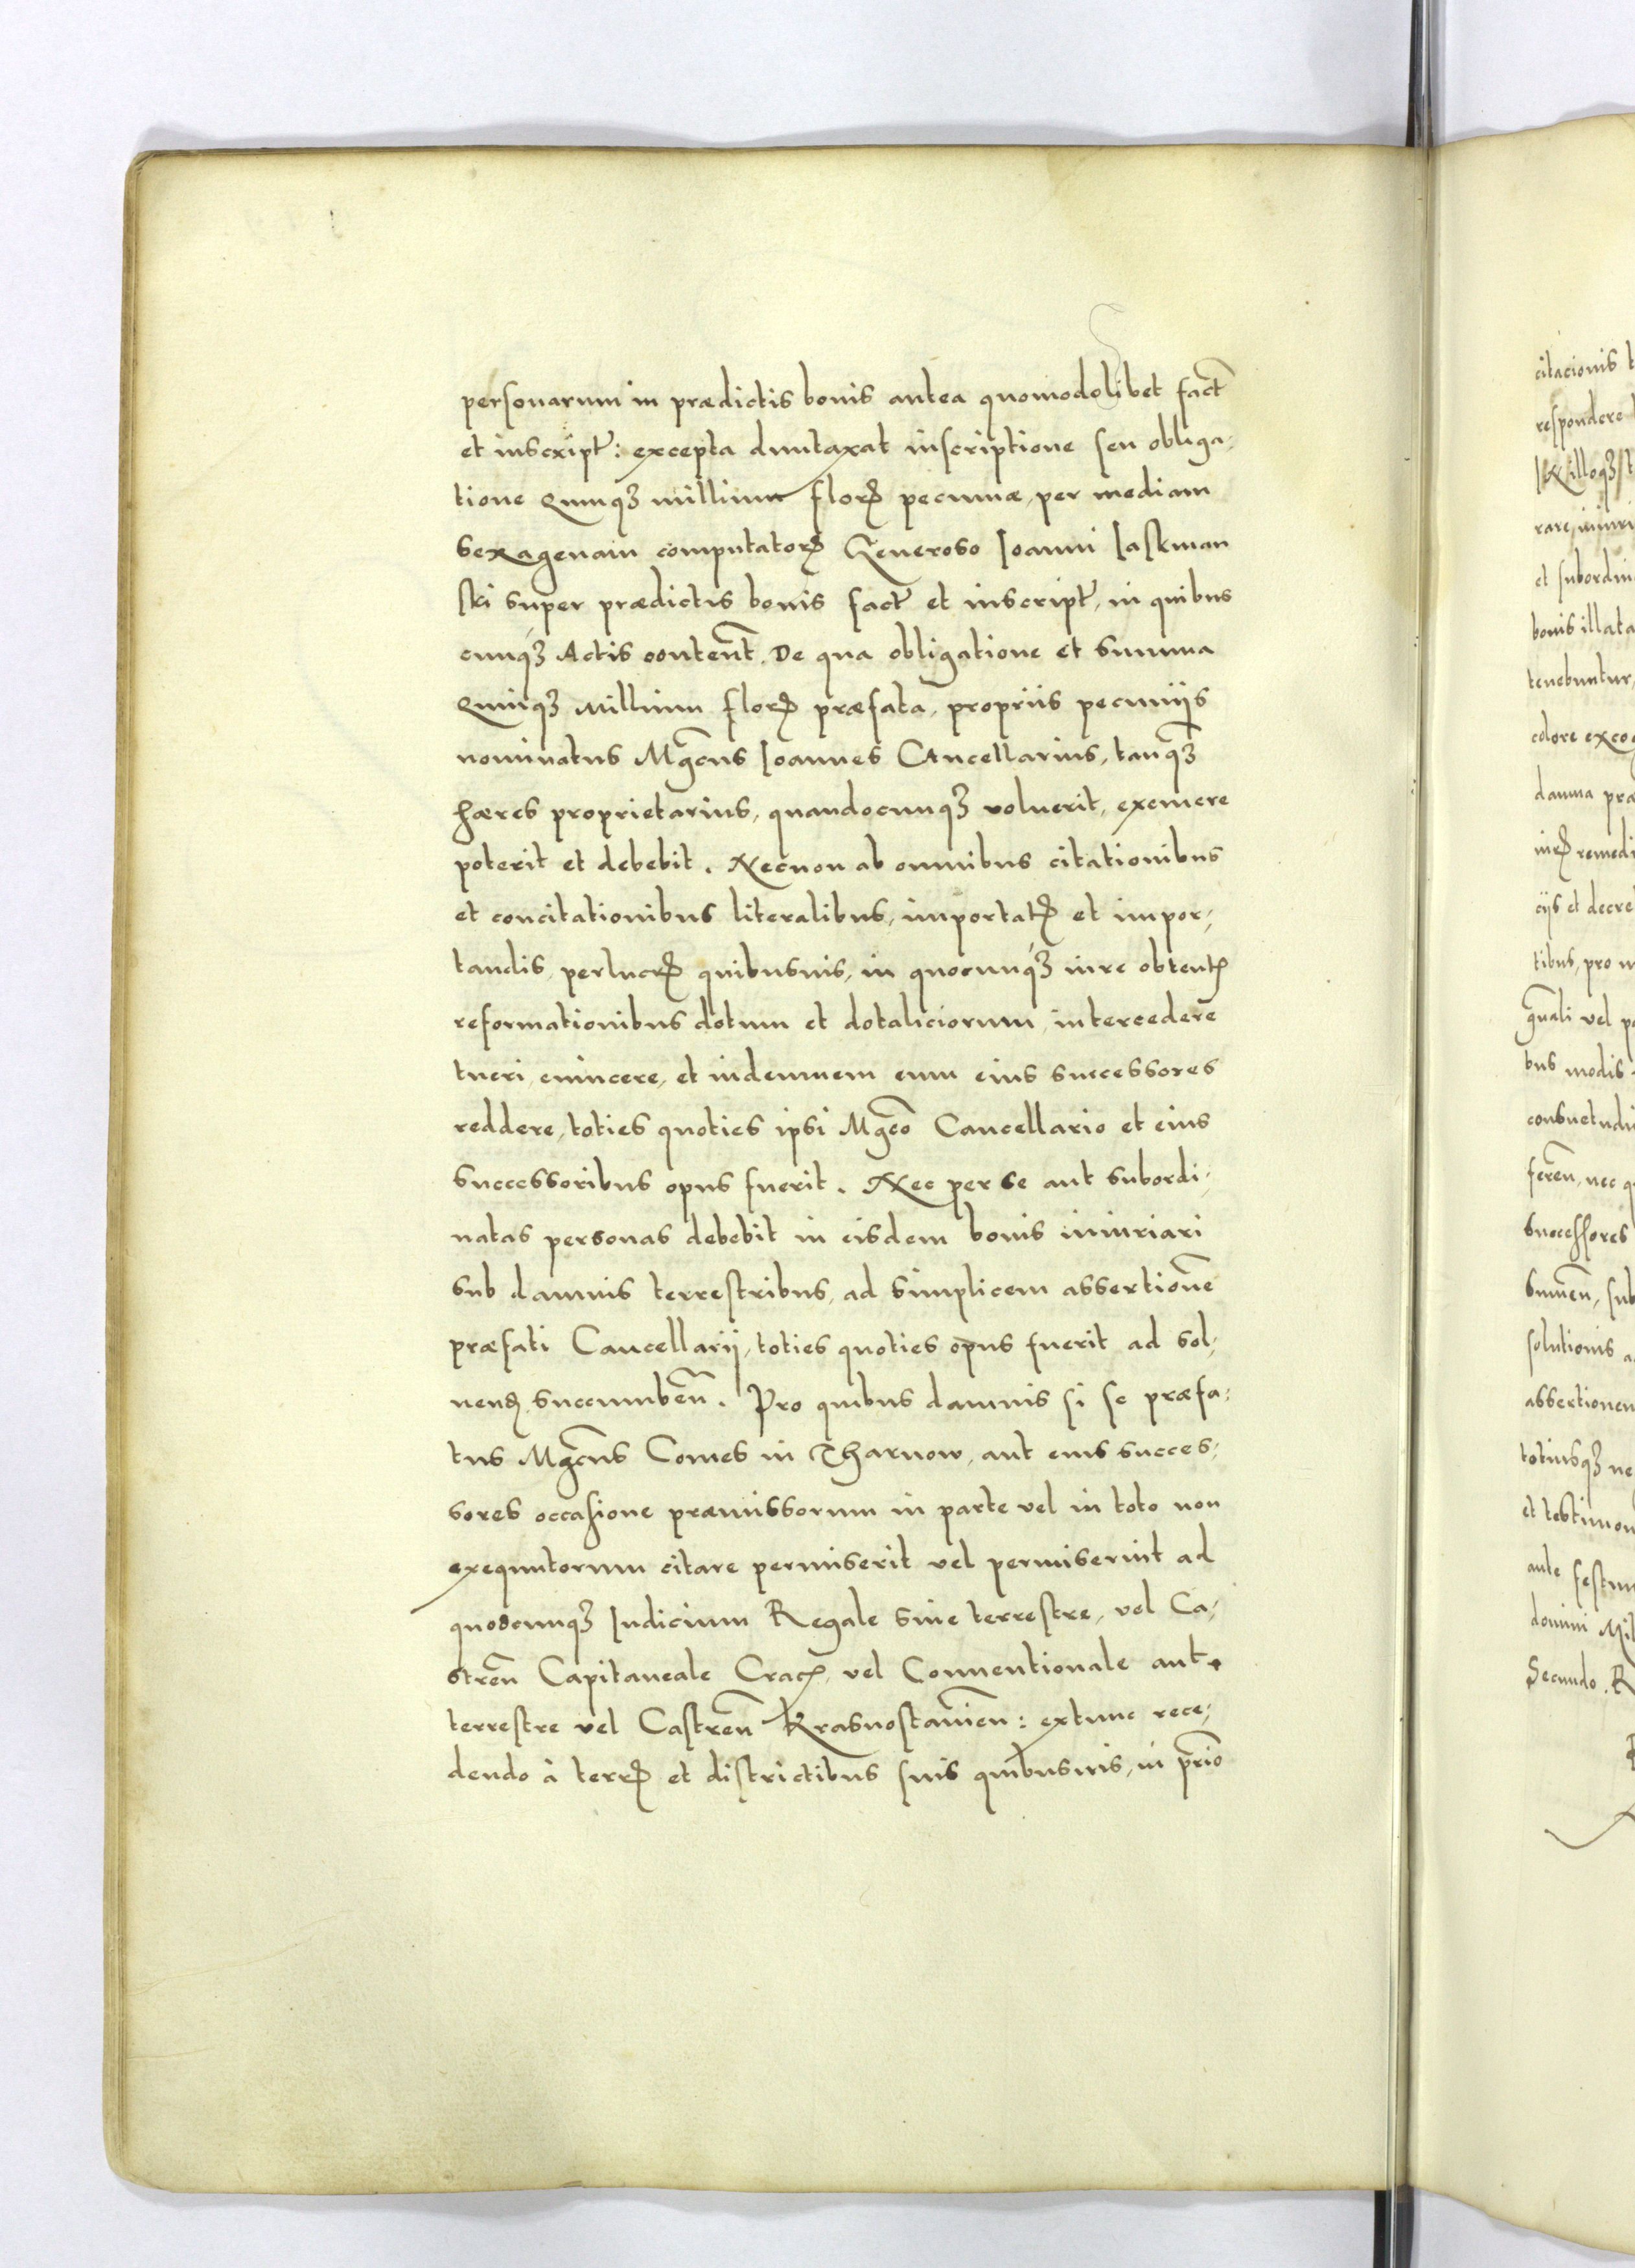 personarum in prædictis bonis antea quomodolibet fact̃
et inscript̃: excepta duntaxat inscriptione seu obliga-
tione quinqꝫ millium florꝫ pecuniæ, per mediam
sexagenam computatorꝫ Generoso Ioanni Iaskman
ski super prædictis bonis fact̃ et inscript̃, in quibus
cunqꝫ Actis content̃. De qua obligatione et summa
quinqꝫ Millium florꝫ præfata, propriis pecunijs
nominatus Mg̃cus Ioannes Cancellarius, tanqꝫ
hæres proprietarius, quandocunqꝫ voluerit, exemere
poterit et debebit. Necnon ab omnibus citationibus
et concitationibus literalibus, importatꝫ et impor-
tandis, perlucrꝫ quibusuis, in quocunqꝫ iure obtentꝫ
reformationibus dotum et dotaliciorum, intercedere
tueri, euincere, et indemnem eum eius successores
reddere, toties quoties ipsi Mg̃co Cancellario et eius
successoribus opus fuerit. Nec per se aut subordi-
natas personas debebit in eisdem bonis iniuriari
sub damnis terrestribus, ad simplicem assertionẽ
præfati Cancellarij, toties quoties opus fuerit ad sol-
uendꝫ succumbeñ. Pro quibus damnis si se præfa-
tus Mg̃cus Comes in Tharnow, aut eius succes-
sores occasione præmissorum in parte vel in toto non
exequutorum citare permiserit vel permiserint ad
quodcunqꝫ Iudicium Regale siue terrestre, vel Ca-
streñ Capitaneale Cracꝫ, vel Conuentionale aut
terrestre vel Castreñ Krasnostauieñ: extunc rece-
dendo à terrꝫ et districtibus suis quibusuis, in prio

citacionis
respondere
illoqꝫ
bonis illata
tenebuntur,
et decre
tibus, pro
vel
bus modis
nec
successores
solutionis
assertionem
totiusqꝫ ne
domini
Secundo. R